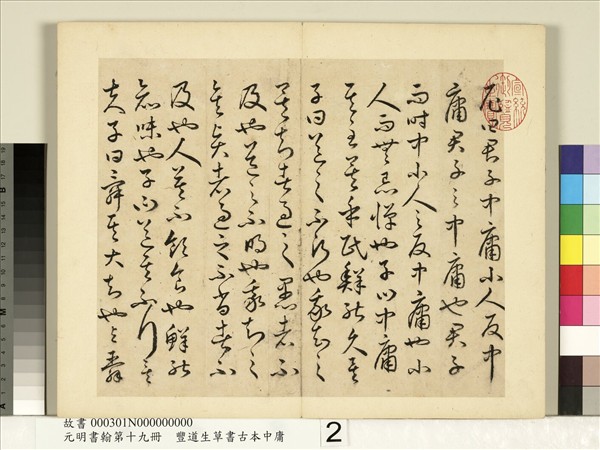 尼曰君子中庸小人反中
庸君子之中庸也君子
而時中小人之反中庸也小
人而無忌憚也子曰中庸
其至矣乎民鮮能久矣
子曰道之不行也我知之
矣知者過之愚者不
及也道之不明也我知之
矣賢者過之不肖者不
及也人莫不飲食也鮮能
知味也子曰道其不行矣
夫子曰舜其大知也與舜
故書 000301N000000000
元明書翰第十九冊 豐道生草書古本中庸
2